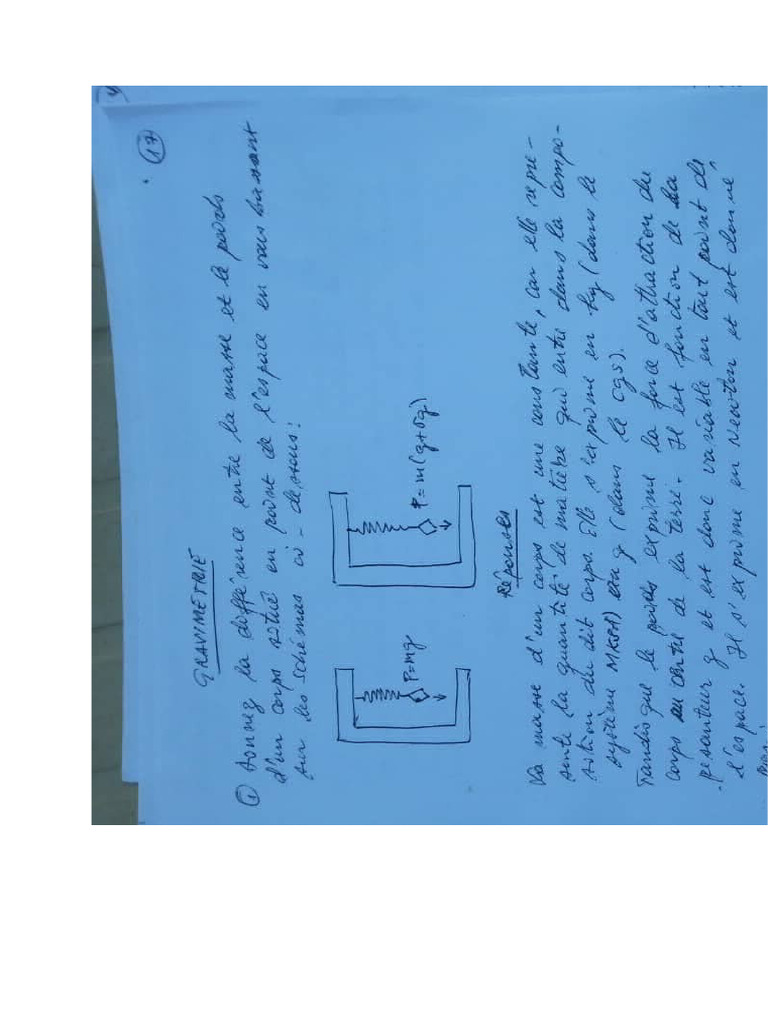 17
GRAVIMETRIE
① Donnez la différence entre la masse et le poids
d'un corps situé en point de l'espace en vous basant
sur les schémas ci-dessous:
P=mg
P=m(g+δg)
Réponses
La masse d'un corps est une constante, car elle repré-
sente la quantité de matière qui entre dans la compo-
sition du dit corps. Elle s'exprime en kg (dans le
système MKSA) ou g (dans le cgs).
Tandis que le poids exprime la force d'attraction du
corps au centre de la terre. Il est fonction de la
pesanteur g et est donc variable en tout point de
l'espace. Il s'exprime en Newton et est donné